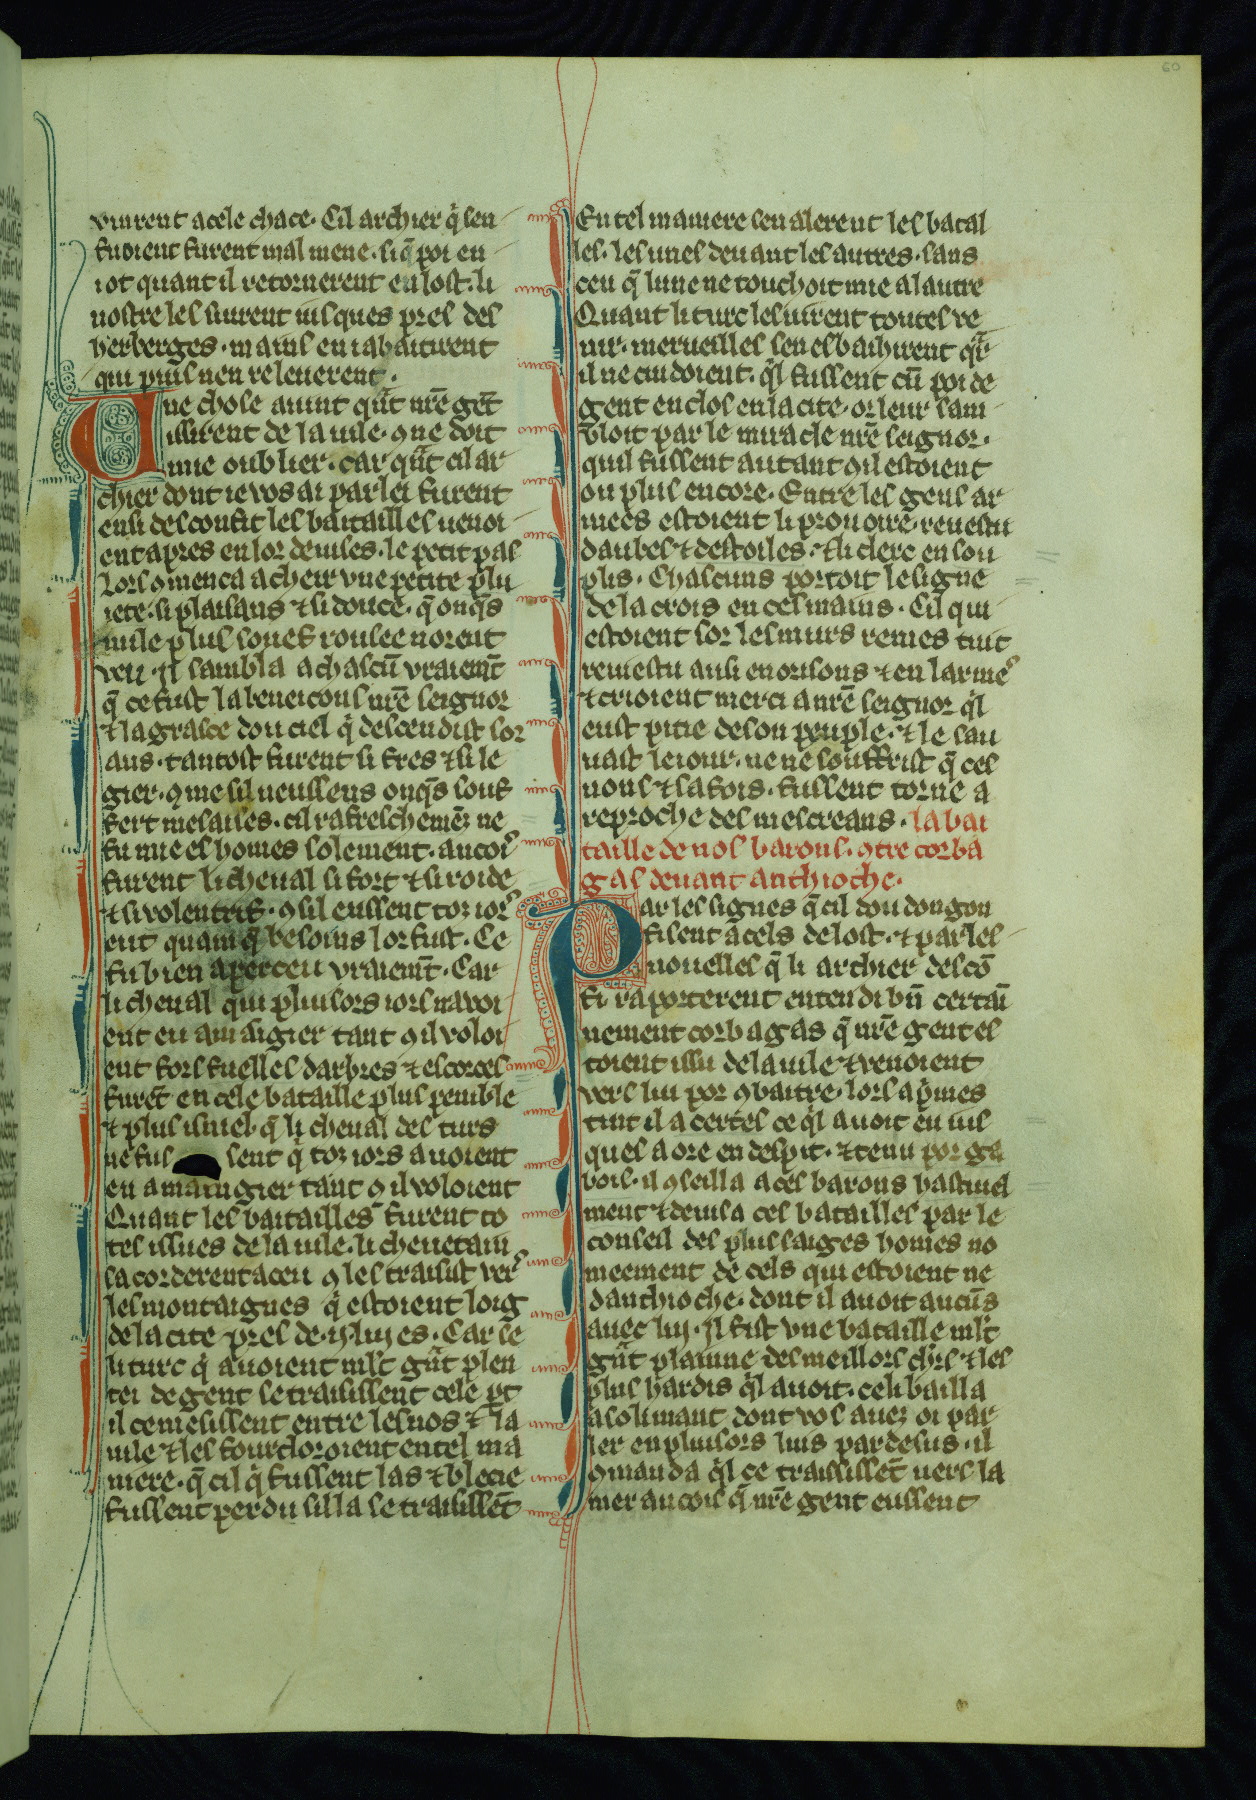 60
vinrent acele chace. Cil archier q̇ sen
fuoient furent mal mene. si q̄ poi en
iot quant il retornerent en lost. li
nostre les siurent iusques pres des
herberges. mains en iabatirent
qui puis nen releuerent.
Une chose auint qu̾t nr̄e gēt
issirent de la uile. ꝯ ne doit
mie oublier. car qu̾t cil ar
chier dont ie vos ai parlei furent
ensi desconfit les batailles uenoi
ent apres en lor deuises. le petit pas
Lors ꝯmenca a cheir vne petite plu
iete. si plaisans ⁊ si douce. q̄ onq̄s
mile plus souef rousee norent
veu. Il sambla a chascū vraiemt̄
q̄ ce fust la beneicons nr̄e seignor
⁊ la grasce dou ciel q̇ descendist sor
aus. tantost furent si fres ⁊ si le
gier. ꝯme sil neussens onq̄s souf
fert mesaises. cil rafreschemēz ne
fu mie es homes solement. ancor̾
furent li cheual si fort ⁊ si roide
⁊ si volenteif. ꝯ sil eussent toz ior̾
eut quanq̄ besoins lor fust. Ce
fu bien aperceu vraiemt̄. Car
li cheual qui pluisors iors nauoi
ent eu a maingier tant ꝯ il voloi
ent fors fuelles darbres ⁊ escorces
furēt en cele bataille plus penible
⁊ plus isniel. q̄ li cheual des turs
ne fus sent q̇ toz iors auoient
eu a maingier tant ꝯ il voloient
Quant les batailles furent to
tes issues de la uile. li cheuetain
sacorderent a ceu ꝯ les traisist ver̾
les montaignes q̇ estoient loig
de la cite pres de .ij. liues. Car se
li turc q̇ auoient ml̄t gu̾t plen
tei de gent se traisissent cele pt
il ce mesissent entre les nos ⁊ la
uile ⁊ les fourcloroient en tel ma
niere. q̄ cil q̇ fussent las ⁊ blecie
fussent perdu sil la se traisissēt
En tel maniere sen alerent les batal
les. les unes deuant les autres. sans
ceu q̄ lune ne touchoit mie a lautre
Quant li turc les uirent toutes ve
nir. merueilles sen esbahirent qr̄
il ne cuidoient. q̇l fussent cū poi de
gent enclos en la cite. or leur sam
bloit par le miracle nr̄e seignor.
quil fussent autant ꝯ il estoient
ou plus encore. Entre les gens ar
mees estoient li prouoire. reuestu
daubes ⁊ destoiles. ⁊ li clerc en sou
plis. Chascuns portoit le signe
de la crois en ces mains. Cil qui
estoient sor les murs remes tuit
reuiestu ausi en orisons ⁊ en larme̾
⁊ crioient merci a nr̄e seignor q̇l
eust pitie de son peuple. ⁊ le sau
uast le iour. ne ne souffrist q̄ ces
nons ⁊ sa fois. fussent torne a
reproche des mescreans. la bai
taille de nos barons. ꝯtre corba
gas deuant anthioche.
Par les signes q̄ cil dou dongon
fisent a cels de lost. ⁊ par les
nouelles q̄ li archier descō
fi raporterent entendi bn̄ certaī
nement corbagas q̄ nr̄e gent es
toient issu de la uile ⁊ venoient
vers lui por ꝯbaitre. lors a ṗmes
tint il a certes ce q̇l auoit eu ius
ques a ore en despit. ⁊ tenu por ga
bois. il ꝯseilla a ces barons hastiuel
ment ⁊ deuisa ces batailles par le
conseil des plus saiges homes no
meement de cels qui estoient ne
danthioche. dont il auoit aucūs
auec lui. Il fist vne bataille ml̄t
gu̾t plainne des meillors chr̄s ⁊ les
plus hardis q̇l auoit. celi bailla
a solimant dont vos auez oi par
ler en pluisors lius par desus. il
ꝯmanda q̇l ce traississet̄ uers la
mer ancois q̄ nr̄e gent eussent